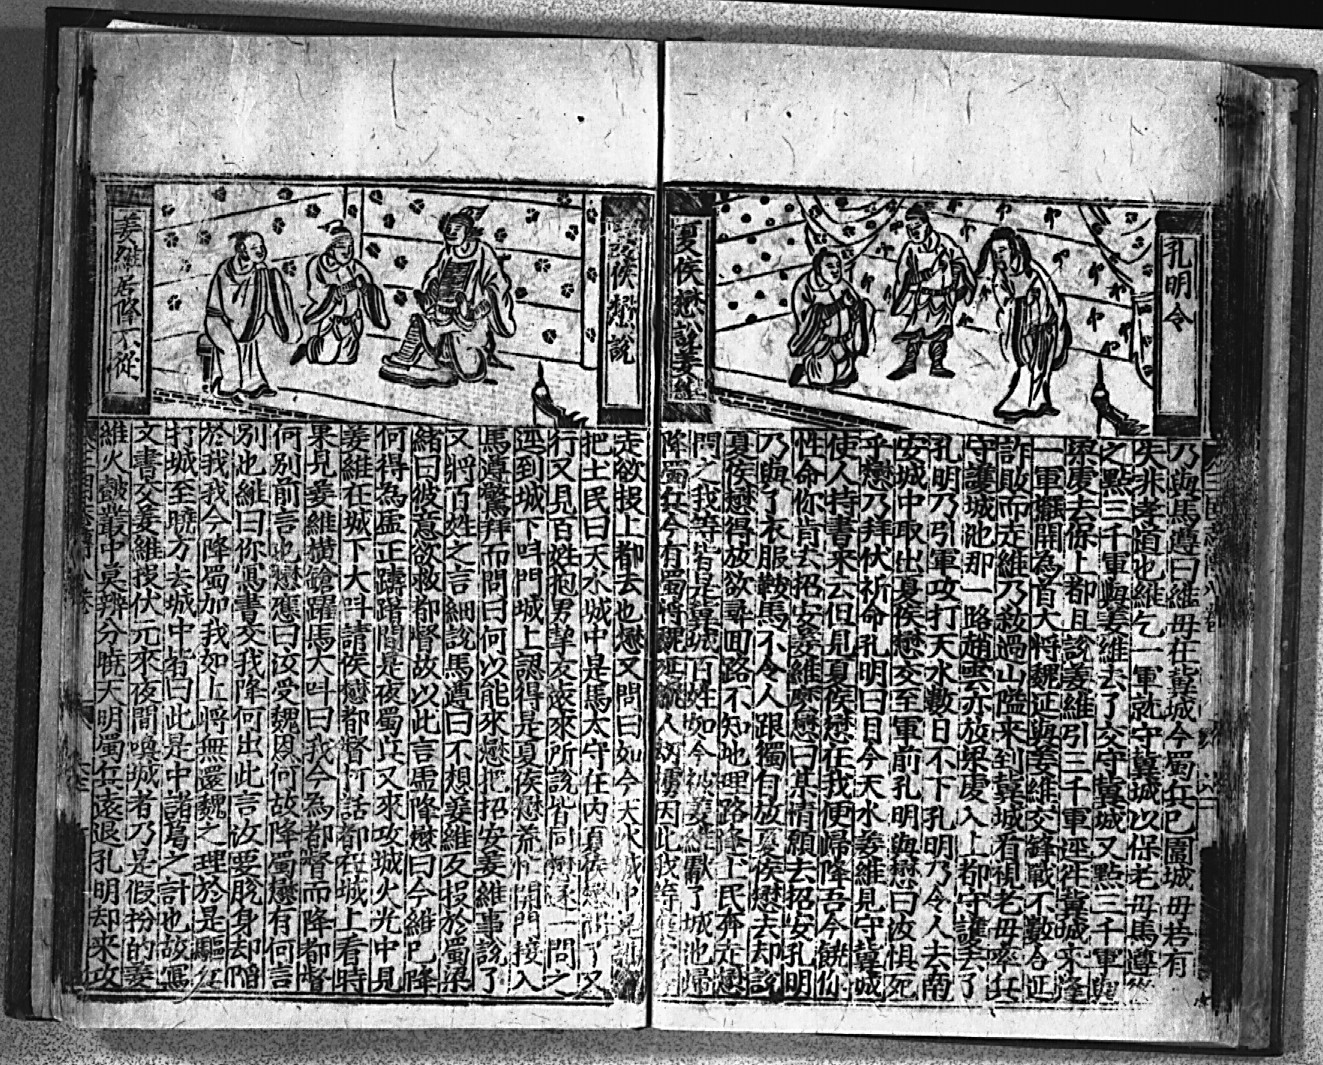 孔明令
夏侯懋說姜維
乃與馬遵曰維母在冀城今蜀兵已圍城母若有
失非孝道也維乞一軍就守冀城以保老母馬遵
之點三千軍與姜維去了交守冀城又點三千軍與
梁虔去保上都且說姜維引三千軍逕往冀城來
一軍擺開為首大將魏延與姜維交鋒戰不數合延
詐敗而走維乃殺過山隘來到冀城看視老母率兵
守護城池那一路趙雲亦放梁虔入上都守護去了
孔明乃引軍攻打天水數日不下孔明乃令人去南
安城中取出夏侯懋交至軍前孔明與懋曰汝惧死
乎懋乃拜伏祈命孔明曰目今天水姜維見守冀城
使人持書來云但見夏侯懋在我便歸降吾今饒你
性命你肯去招安姜維麽懋曰某情願去招安孔明
乃與了衣服鞍馬不令人跟獨自放夏侯懋去却說
夏侯懋得放欲尋回路不知地理路逢土民奔走懋
問之我等皆是冀城百姓如今被姜維獻了城池歸
降蜀兵今有蜀將魏延縱人刼擄因此我等
夏侯懋說
姜維居降不從
走欲投上都去也懋又問曰如今天水城中是
把土民曰天水城中是馬太守在內夏侯懋聞了又
行又見百姓抱男挈友遠來所說皆同懋逐一問之
逕到城下叫門城上認得是夏侯懋荒忙開門接入
馬遵驚拜而問曰何以能來懋把招安姜維事說了
又將百姓之言細說馬遵曰不想姜維反投於蜀梁
緒曰彼意欲救都督故以此言虛降懋曰今維已降
何得為虛正躊躇間是夜蜀兵又來攻城火光中見
姜維在城下大叫請侯懋都督打話都在城上看時
果見姜維橫鎗躍馬大叫曰我今為都督而降都督
何別前言也懋應曰汝受魏恩何故降蜀懋有何言
別也維曰你寫書交我降何出此言汝要脫身却陷
於我我今降蜀加我如上將無還魏之理於是驅兵
打城至曉方去城中皆曰此是中諸葛之計也故寫
文書交姜維投伏元來夜間喚城者乃是假扮的姜
維火皷叢中莫辨分曉天明蜀兵遠退孔明却來攻